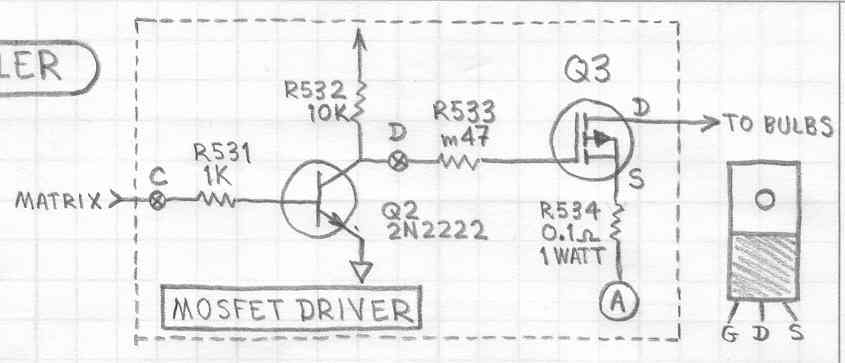 LER
Q3
R532
10K
D
R533
m47
D
TO BULBS
R531
1K
C
MATRIX
S
Q2
2N2222
R534
0.1Ω
1WATT
MOSFET DRIVER
A
G D S